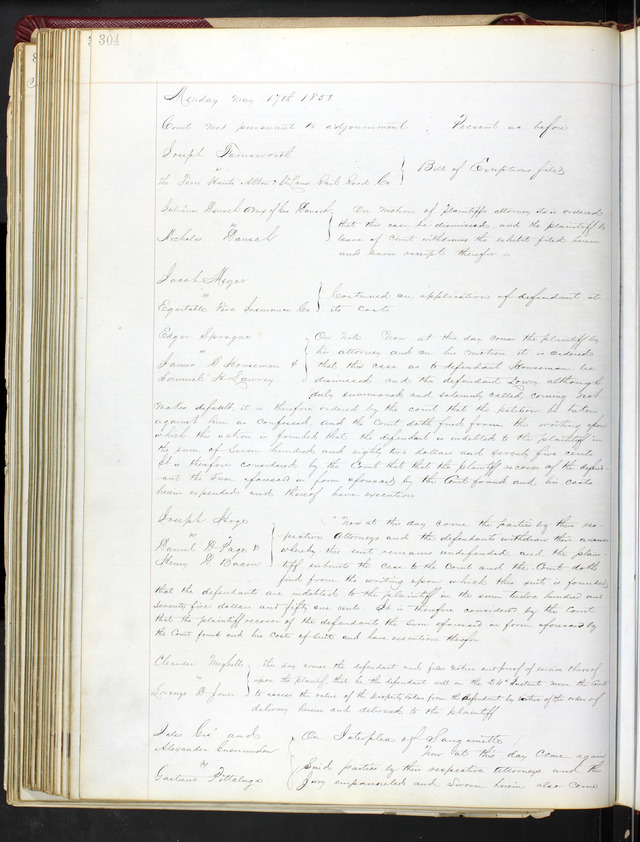 304
Monday May 17th 1858
Court met pursuant to adjournment. Present as before
Joseph Farnsworth
vs
The Terre Haute Alton & St Louis Rail Road Co
Bill of Exceptions filed
Juliane Dausch Admx of Geo Dausch
vs
Nicholas Dausch
On motion of plaintiffs attorney it is ordered
that this case be dismissed, and the plaintiff by
leave of Court withdraws the exhibit filed herein
and leaves receipt therefor
Jacob Meyer
vs
Equitable Fire Insurance Co
Continued on application of defendant at
its costs
Edgar Sprague
vs
James D Houseman &
Samuel H Lowry
On Note. Now at this day comes the plaintiff by
his attorney and on his motion it is ordered
that this case as to defendant Houseman be
dismissed and the defendant Lowry although
duly summoned and solemnly called, coming not
makes default, it is therefore ordered by the court that the petition be taken
against him as confessed, and the Court doth find from the writing upon
which this action is founded that the defendant is indebted to the plaintiff in
the sum of Seven hundred and eighty two dollars and seventy five cents
It is therefore considered by the Court that that the plaintiff recover of the defend-
ant the sum aforesaid in form aforesaid by the Court found and his costs
herein expended and thereof have execution
Joseph Hoge
vs
Daniel D Page &
Henry D Bacon
Now at this day come the parties by their res-
pective Attorneys and the defendants withdraw their answer
whereby this suit remains undefended and the plain-
tiff submits the case to the Court and the Court doth
find from the writing upon which this suit is founded,
that the defendants are indebted to the plaintiff in the sum twelve hundred and
seventy five dollars and fifty one cent. It is therefore considered by the Court
that the plaintiff recover of the defendants the Sum aforesaid in form aforesaid by
the Court found and his Costs of suit and have execution therefor
Cleander Mighill
vs
Lorenzo D Jones
This day comes the defendant and files notice and proof of service thereof
upon the plaintiff, that he the defendant will on the 24th instant move the Court
to assess the value of the property taken from the defendant by virtue of the order of
delivery herein and delivered to the plaintiff
Jules and
Alexander
vs
Gaetano Pottaluga
On Interplea of Sanguinette
Now at this day come again
Said parties by their respective Attorneys and the
Jury empanneled and Sworn herein also come